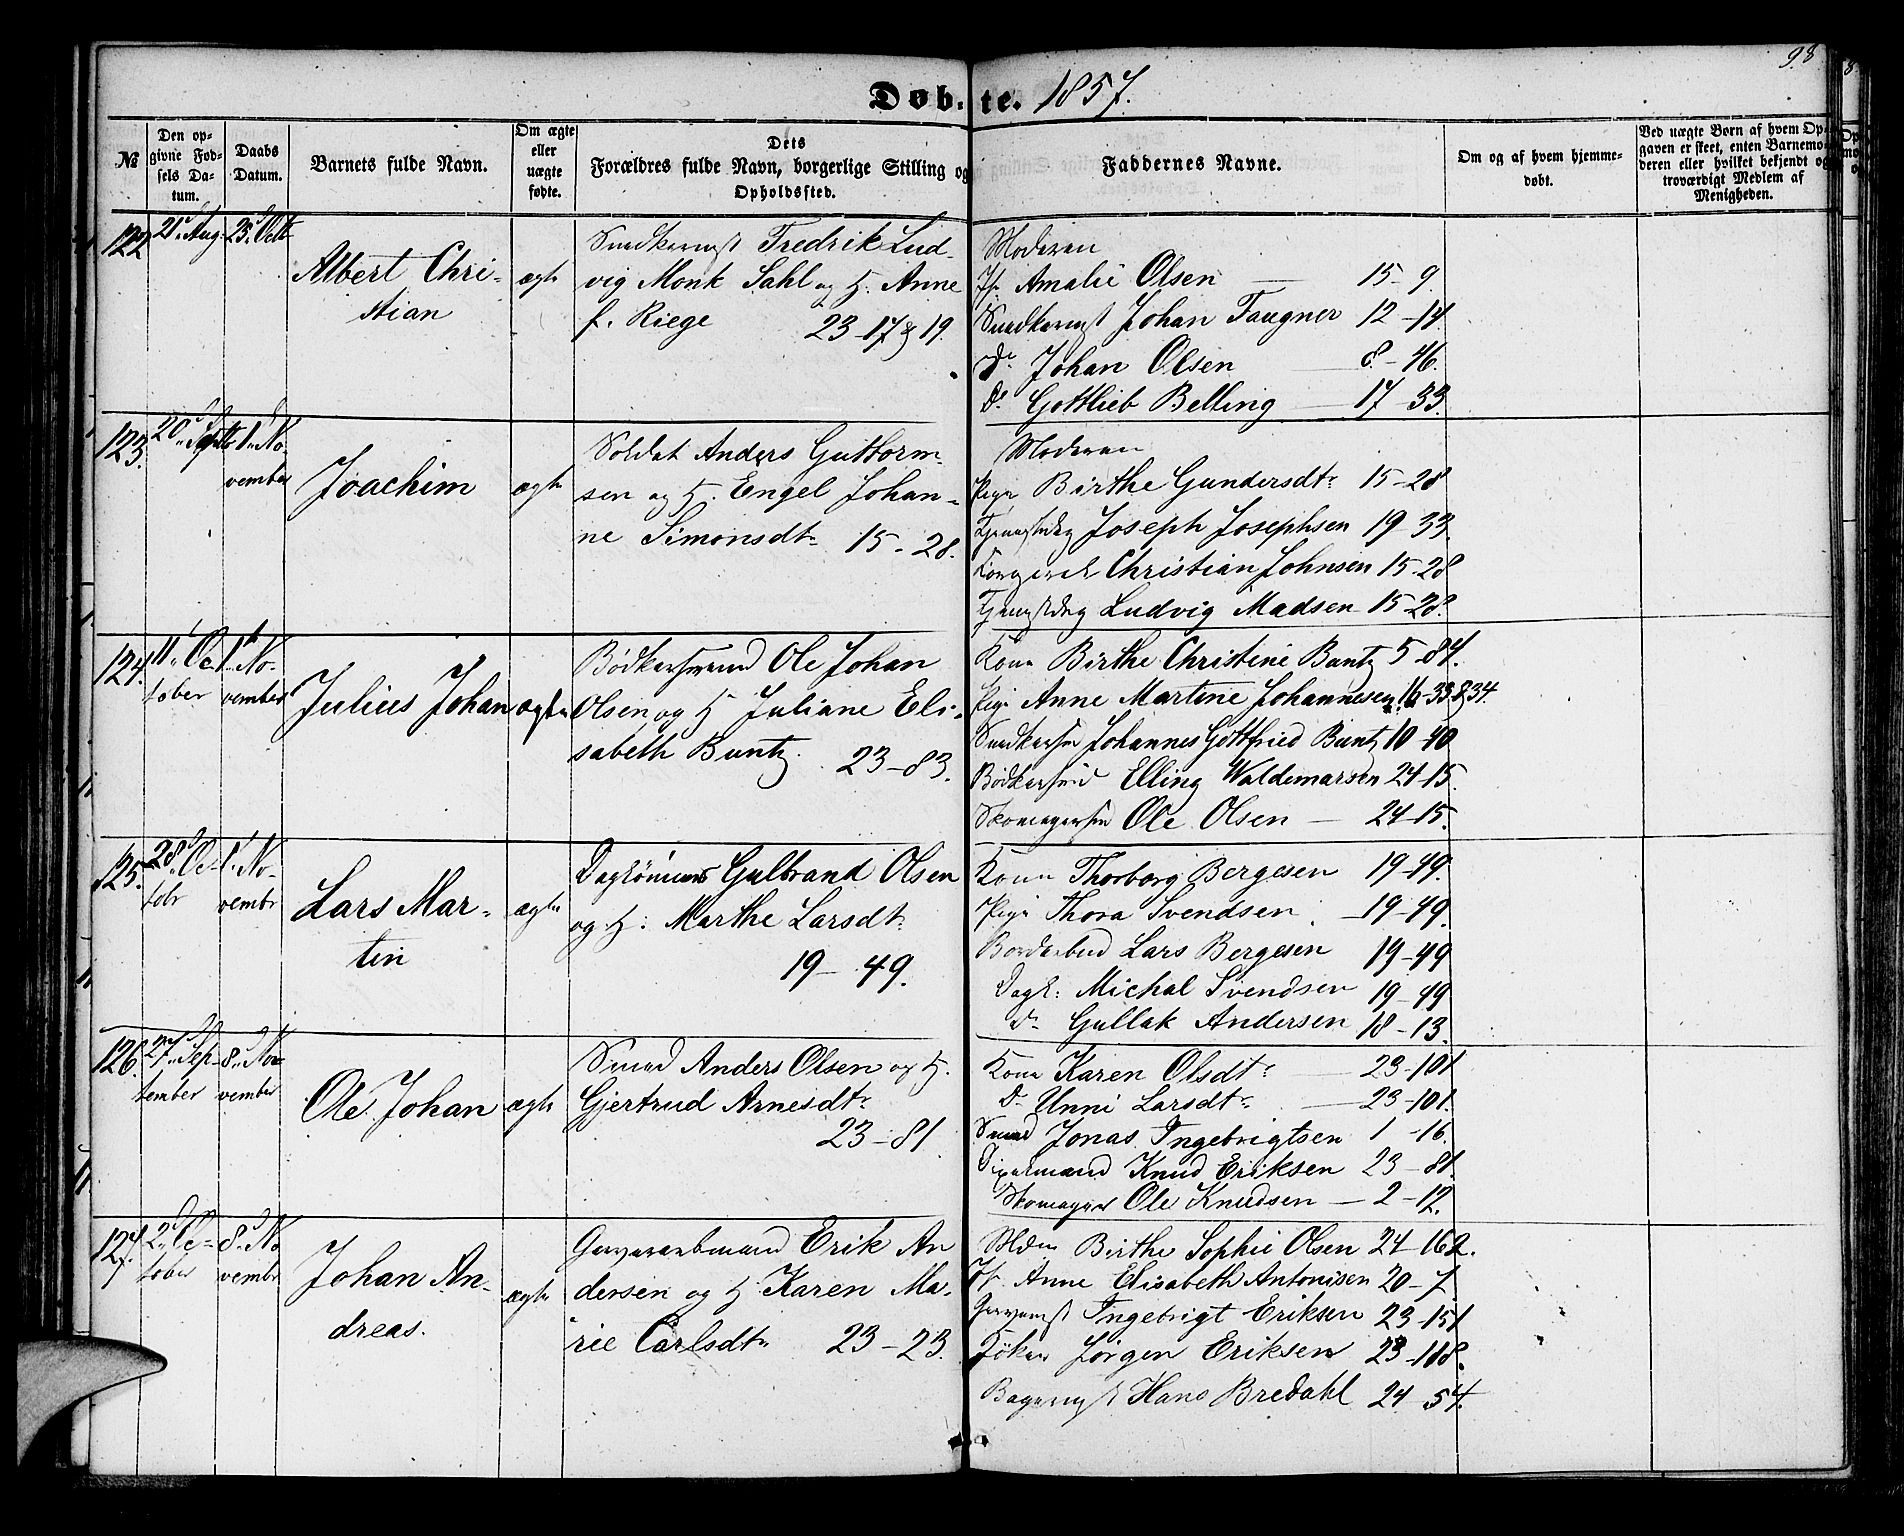 98
Døbte. 1857.
№
Den opgivne Fødsels Datum.
Daabs Datum.
Barnets fulde Navn.
Om ægte eller uægte fødte.
Dets Forældres fulde Navn, borgerlige Stilling og Opholdssted.
Faddernes Navne.
Om og af hvem hjemmedøbt.
Ved uægte Børn af hvem Opgaven er skeet, enten Barnemoderen eller hvilket bekjendt og troværdigt Medlem af Menigheden.
122
21 Aug.
25 Octb
Albert Chri-
stian
ægte
Snedkermst Fredrik Lud-
vig Monk Sahl og H. Anne
f. Riege 23-17 & 19.
Moderen
Jf. Amalie Olsen 15-9.
Snedkermst Johan Faugner 12-14
Do Johan Olsen 8-46.
Do Gottlieb Belling 17-33.
123.
20 Septb
1 No-
vember
Joachim
ægte
Soldat Anders Guttorm-
sen og H. Engel Johan-
ne Simonsdtr 15-28.
Moderen
Pige Birthe Gundersdtr 15-28
Joseph Josephsen 19-33.
Christian Johnsen 15-28
Ludvig Madsen 15-28.
124.
11 Oc-
tober
1 No-
vember
Julius Johan
ægte
Bødkersvend Ole Johan
Olsen og H Juliane Eli-
sabeth Buntz. 23-83.
Kone Birthe Christine Buntz 5-84.
Pige Anne Martine Johannesen 16-33 & 34.
Snedkersv Johannes Gottfried Buntz 10-40
Bødkersvd Elling Waldemarsen 24-15.
Skomagersv Ole Olsen 24-15.
125.
28 Oc-
tobr
1 No-
vembr
Lars Mar-
tin
ægte
Daglønner Gulbrand Olsen
og H: Marthe Larsdtr
19-49.
Kone Thorborg Bergesen 19-49.
Pige Thora Svendsen 19-49.
Bordarbud Lars Bergesen 19-49
Dagl: Michal Svendsen 19-49
do Gullak Andersen 18-13.
126.
27 Sep-
tember
8 No-
vember
Ole Johan
ægte
Smed Anders Olsen og H.
Gjertrud Arnesdtr
23-81.
Kone Karen Olsdtr 23-101
Do Unni Larsdtr 23-101.
Smed Jonas Ingebrigtsen 1-16.
Knud Eriksen 23-81
Skomager Ole Knudsen 2-12.
127.
2 Oc-
tober
8 No-
vembr
Johan An-
dreas.
ægte
Garverarbmand Erik An
dersen og H Karen Ma-
rie Carlsdtr 23-23.
Mdm Birthe Sophie Olsen 24-162.
Jf. Anne Elisabeth Antonisen 20-7.
Garvermst Ingebrigt Eriksen 23-151
Jørgen Eriksen 23-118.
Bagermst Hans Bredahl 24-54.